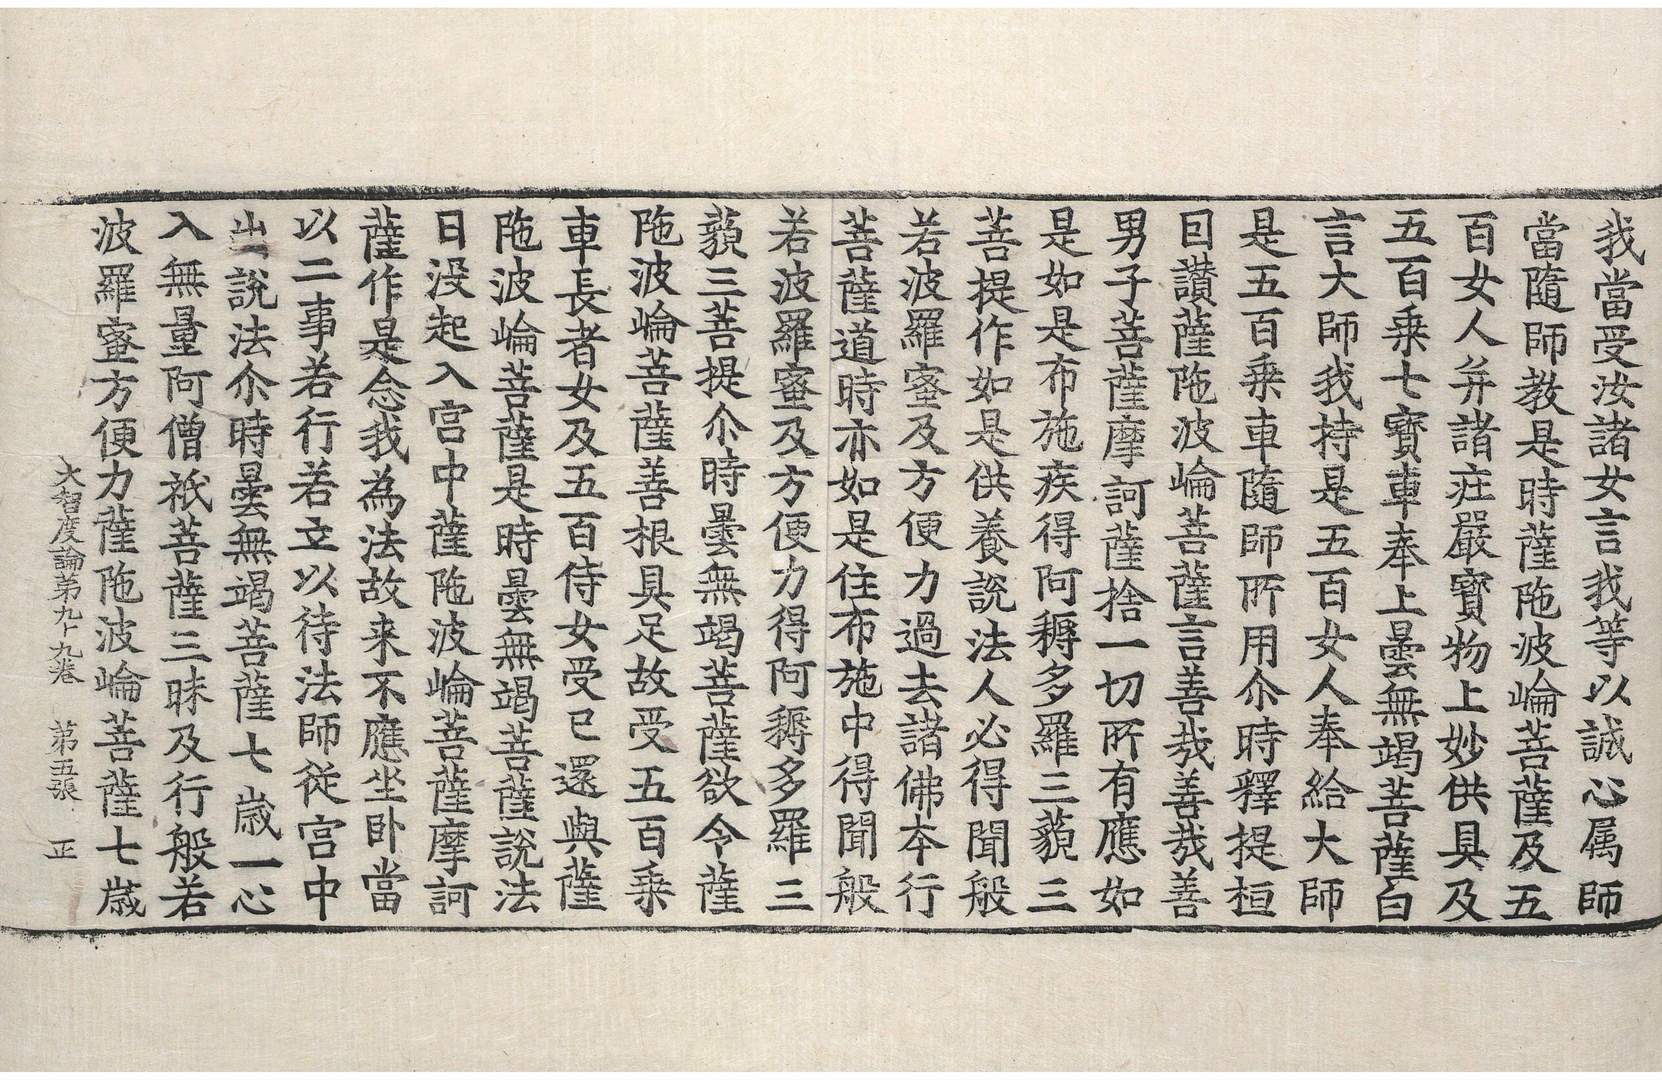 我當受汝諸女言我等以誠心属師
當隨師教是時薩陁波崘菩薩及五
百女人并諸莊嚴寶物上妙供具及
五百乗七寶車奉上曇無竭菩薩白
言大師我持是五百女人奉給大師
是五百乗車隨師所用尒時釋提桓
因讃薩陁波崘菩薩言善哉善哉善
男子菩薩摩訶薩捨一切所有應如
是如是布施疾得阿耨多羅三藐三
菩提作如是供養說法人必得聞般
若波羅蜜及方便力過去諸佛本行
菩薩道時亦如是住布施中得聞般
若波羅蜜及方便力得阿耨多羅三
藐三菩提尒時曇無竭菩薩欲令薩
陁波崘菩薩善根具足故受五百乗
車長者女及五百侍女受已還與薩
陁波崘菩薩是時曇無竭菩薩說法
日没起入宫中薩陁波崘菩薩摩訶
薩作是念我為法故来不應坐卧當
以二事若行若立以待法師從宫中
出說法尒時曇無竭菩薩七歲一心
入無量阿僧祇菩薩三昧及行般若
波羅蜜方便力薩陁波崘菩薩七歲
大智度論第九十九卷 第五張 正